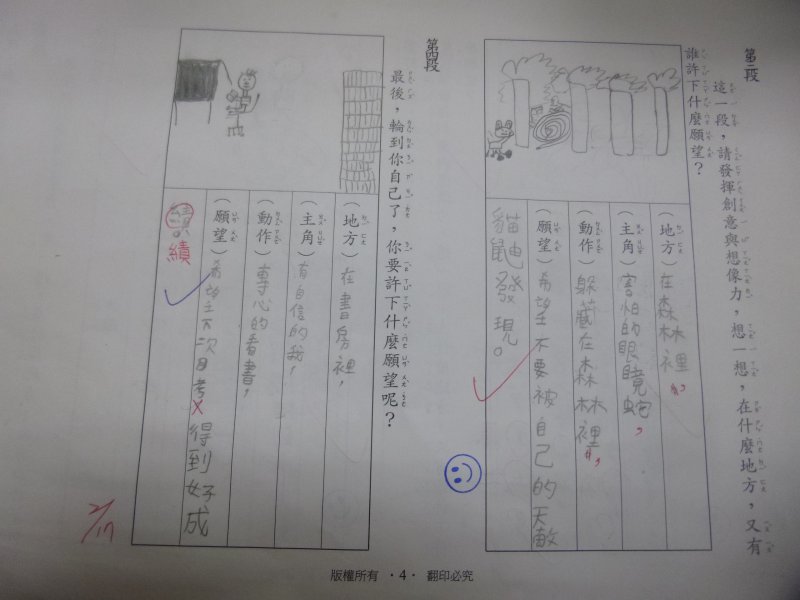 第三段
這一段，請發揮創意與想像力，想一想，在什麼地方，又有
誰許下什麼願望？
（地方）在森林裡，
（主角）害怕的眼鏡蛇，
（動作）躲藏在森林裡，
（願望）希望不要被自己的天敵
貓鼬發現。
第四段
最後，輪到你自己了，你要許下什麼願望呢？
（地方）在書房裡，
（主角）有自信的我，
（動作）專心的看書，
（願望）希望下次月考得到好成
績
2/17
版權所有 ·4· 翻印必究